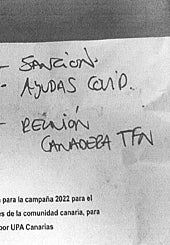 - SANCION.
- AYUDAS COVID.
- REUNIÓN
CANADERA TFN
para la campaña 2022 para el
es de la comunidad canaria, para
por UPA Canarias